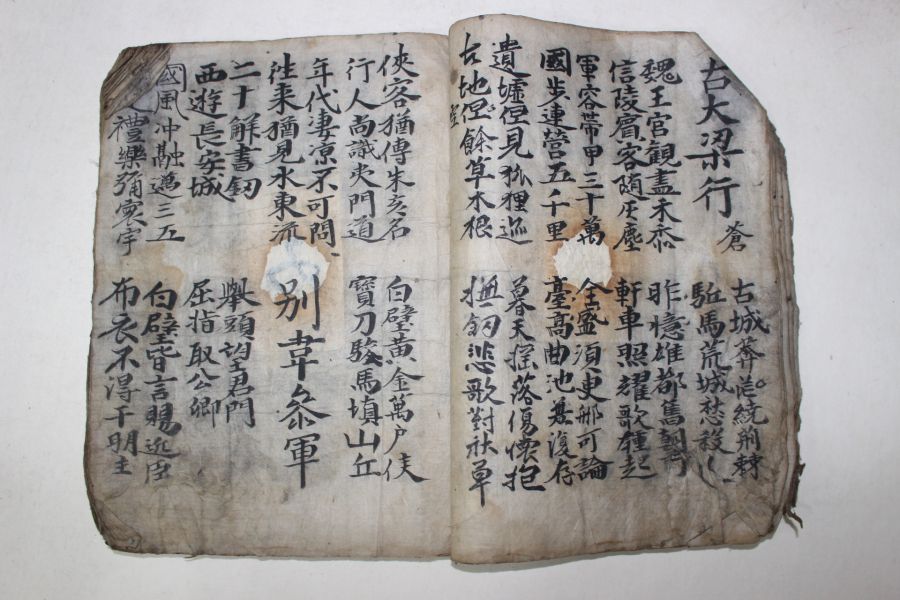 古大梁行
蒼
古城莽茫繞荊榛
駈馬荒城愁殺
魏王官観盡禾黍
信陵賓客随灰塵
昨憶雄都馬朝市
軒車照耀歌鍾起
軍容帶甲三十萬
國步連營五千里
全盛須更那可論
臺高曲池無復存
遺墟但見狐狸迹
古地但餘草木根
空
暮天揺落傷懷抱
撫釰悲歌對秋草
俠客猶傳朱亥名
行人尚識夷門道
白璧黃金萬户侯
寶刀駿馬填山丘
年代凄凉不可問
徃来猶見水東流
別韋叅軍
二十解書釰
西遊長安城
舉頭望君門
屈指取公卿
國風冲融邁三五
禮樂彌寰宇
白璧皆言賜近臣
布衣不得干明主